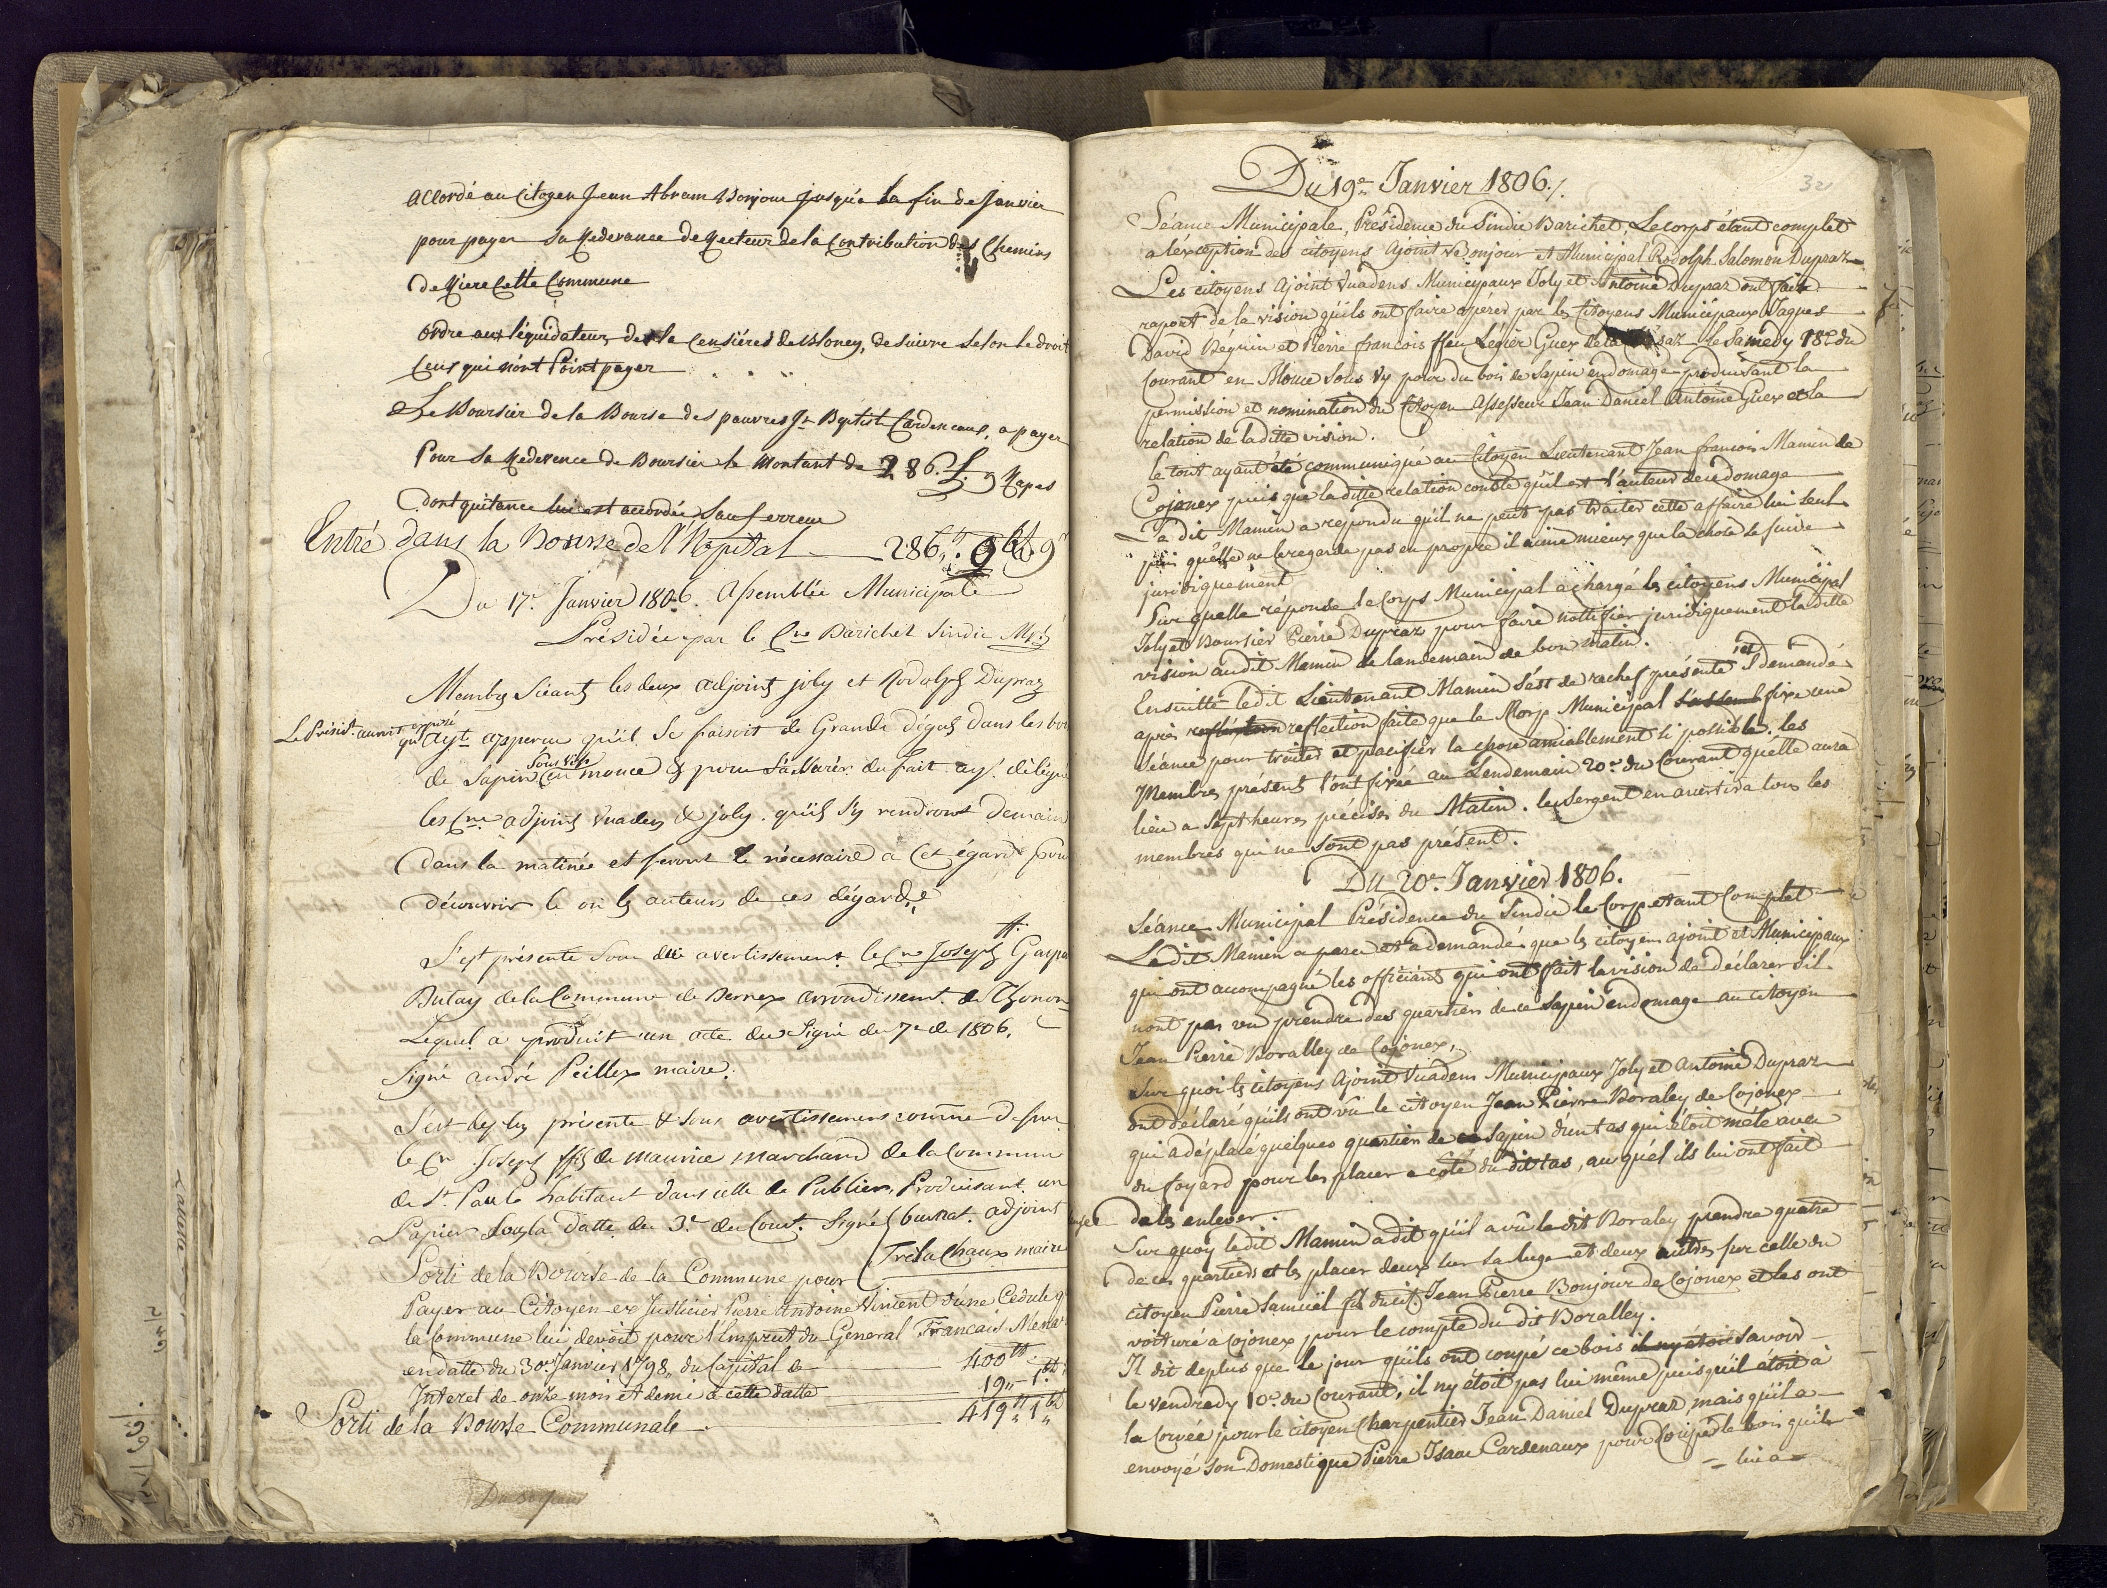 accordé au Citoyen Jean Abram Bonjour jusqu'à la fin de Janvier
pour payer sa Redevance de Recteur de la Contribution des Chemins
de Riere Cette Commune
Ordre aux léquidateur de la Censiéres de Bloney, de suivre selon le droit
Ceux qui n'ont Point payer
Le Boursier de la Bourse des pauvres Jn Baptist Cardenaux, a payer
Pour sa Redevence de Boursier le Montant de 286. L. 9 Rapes
dont quitance lui est accordée Sauf erreur
Entré dans la Bourse de l'Hopital 286
Du 17e Janvier 1806. Assemblée Municipale
Présidée par le Cne Barichet Sindic
Membres Siéants les deux adjoints joly et Rodolph Dupraz
Le Présidt. auroit exposé
qu' ayt apperçu qu'il se faisoit de Grands dégats dans les boi
de Sapin en mouce & pour s'assurer du fait ayt délégué
les Cne adjoints Vuadens & joly. qu'ils s'y rendront demain
dans la matinée et feront le nécessaire a Cet égard pour
découvrir le ou les auteurs de ces dégards
S'est présenté Sous avertissement le Cne Joseph Gaspa
Butay de la Commune de Bernex arrondissemt. de Thonon
Lequel a produit un acte du Signé du 7e de 1806,
Signé andré Peillex maire.
S'est présenté & Sous avertissement comme dessus
le Cn Joseph ffs de maurice marchand de la Commune
de St. Paul habitant dans celle de Publier, Produisant un
Papier Sous la Datte du 3e du Court. Signé Curnat. adjoint
Fréla Chaux maire
Sorti de la Bourse de la Commune pour
Payer au Citoyen ex Justicier Pierre Antoine Vincent d'une Cedule q
la Commune lui devoit pour l'Emprut du General Francais Ménar
en datte du 30e Janvier 1798, du Capital de 400
Interet de onze mois et demi à cette datte 19 1
Sorti de la Bourse Communale 419 1
Du 19e Janvier 1806.
32
Séance Municipale, Présidence du Sindic Barichet, Le corps étant complet
a léxception des citoyens Ajoint Bonjour et Municipal Rodolph Salomon Dupraz
Les citoyens Ajoint Vuadens Municipaux Joly et Antoine Dupraz ont fait
raport de la vision qu'ils ont faire opérer par les Citoyens Municipaux Jaques
David Béguin et Pierre francois ffeu Légier Guex le Samedy 18e du
Courant en Mouce Sous Vy pour du bois de Sapin endomagé produisant la
permission et nomination du Citoyen Assesseur Jean Daniel Antoine Guex et la
relation de la ditte vision.
le tout ayant été communiqué au Citoyen Lieutenant Jean francois Mamin de
Cojonex puis que la ditte relation conste qu'il est l'auteur de ce domage
La dit Mamin a repondu qu'il ne peut pas traiter cette affaire lui seul
puis qu'elle ne le regarde pas en propre il aime mieux que la chose se suive
juridiquement
Sur quelle réponse le Corps Municipal a chargé les citoyens Municipal
Joly et Boursier Pierre Dupraz pour faire nottifier juridiquement la ditte
vision audit Mamin de landemain de bon matin.
Ensuitte ledit Lieutenant Mamin s'est de rachef présenté et demandé
après reflection faite que le Corp Municipal fixe une
séance pour traiter et pacifier la chose amiablement si possible. les
Membres présents l'ont fixée au Lendemain 20e du Courant quelle aura
lieu a Sept heures précises du Matin. le Sergent en avertira tous les
membres qui ne sont pas présent.
Du 20e Janvier 1806.
Séance Municipal Présidence du Sindic le Corp etant Complet
Ledit Mamin a paru et a demandé que les citoyens ajoint et Municipaux
qui ont accompagné les officiants qui ont fait la vision de déclarer s'il
nont pas vu prendre des quartiers de ce Sapin endomagé au citoyen
Jean Pierre Boralley de Cojonex,
Sur quoi les citoyens Ajoint Vuadens Municipaux Joly et Antoine Dupraz
ont déclaré qu'ils ont vû le citoyen Jean Pierre Boraley de Cojonex
qui a déplacé quelques quartier de ce Sapin d'un tas qui étoit mélé avec
du foyard pour les placer a coté du dit tas, auquél ils lui ont fait
de les enlever.
Sur quoy ledit Mamin a dit qu'il a vû le dit Boraley prendre quatre
de ces quartiers et les placer deux sur sa luge et deux autres sur celle du
citoyen Pierre Samuël fils du cit. Jean Pierre Bonjour de Cojonex et les ont
voituré a Cojonex pour le compte du dit Boralley.
Il dit deplus que le jour qu'ils ont coupé ce bois il n'y étoit Savoir
le vendredy 10e du Courant, il n'y étoit pas lui même puisqu'il étoit à
la Corvée pour le citoyen Charpentier Jean Daniel Dupraz mais qu'il a
envoyé son Domestique Pierre Isaac Cardenaux pour Couper le bois qu'il
= lui a =